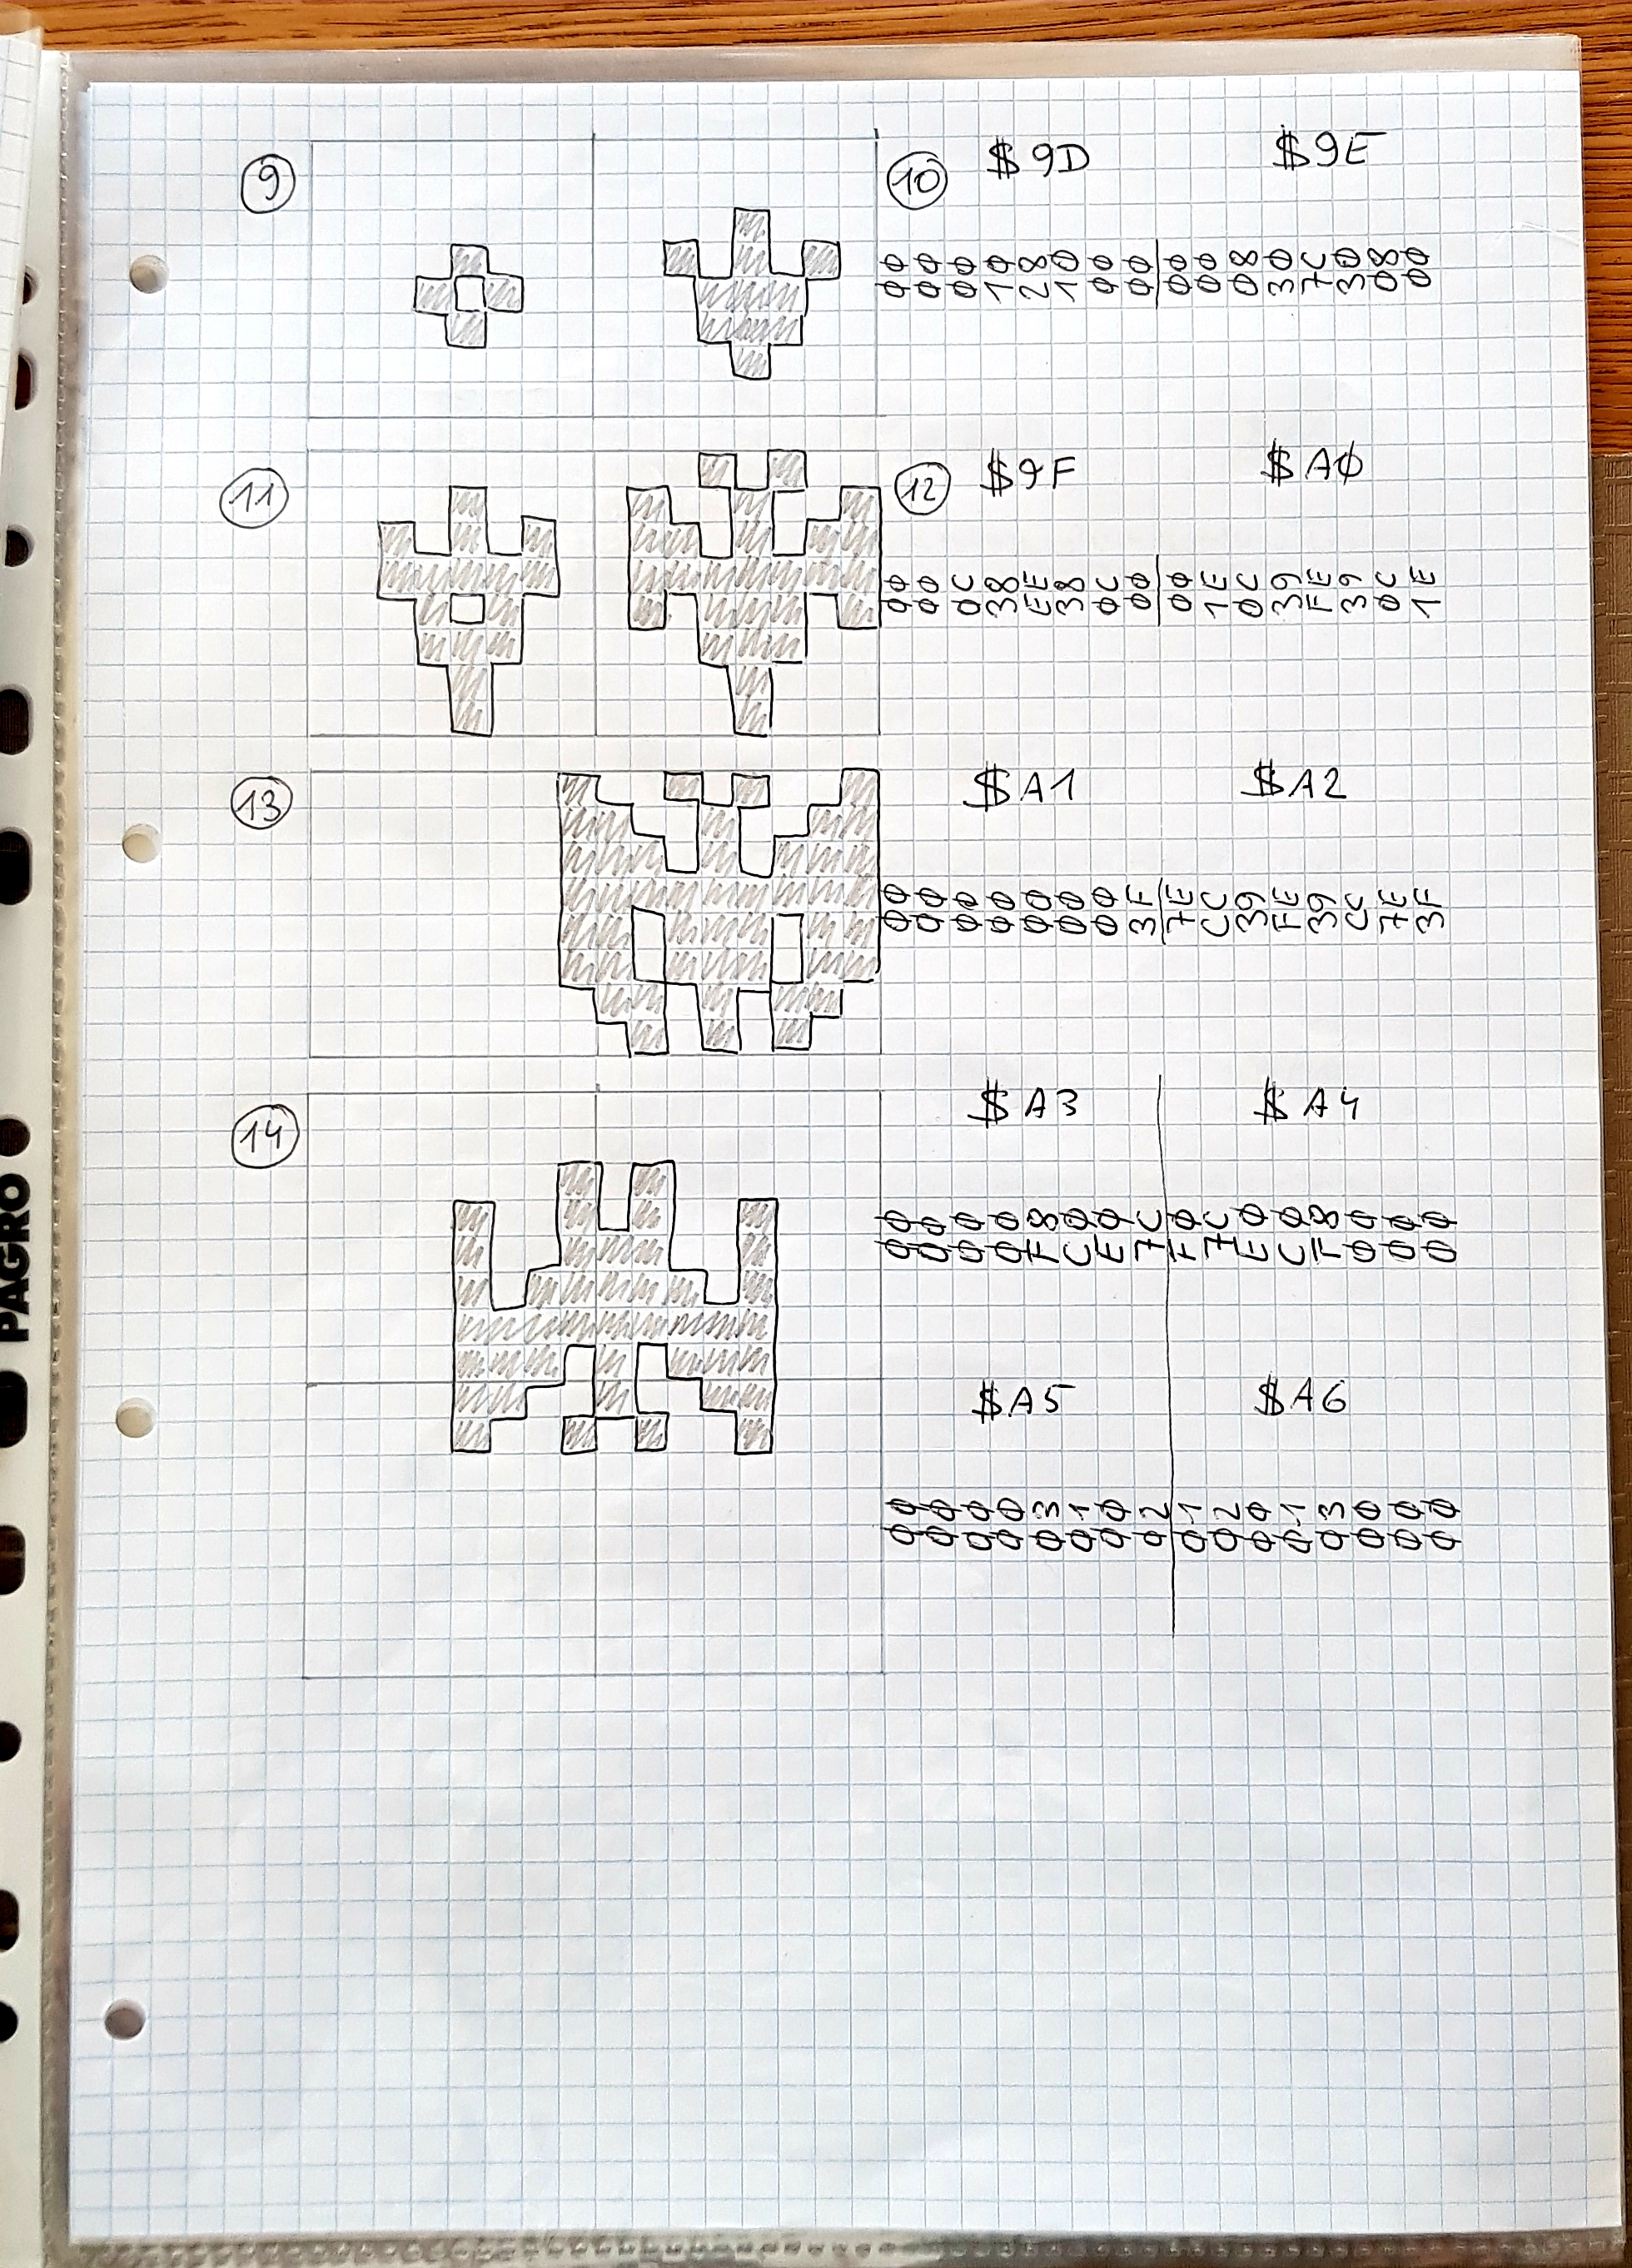 9
10
$9D $9E
00 00 00 10 28 10 00 00 00 00 08 30 7C 30 08 00
11
12
$9F $A0
00 00 0C 38 EE 38 0C 00 00 1E 0C 39 FE 39 0C 1E
13
$A1 $A2
00 00 00 00 00 00 00 3F 7E CC 39 FE 39 CC 7E 3F
14
$A3 $A4
00 00 00 00 F8 C0 E0 7C F0 7C E0 C0 F8 00 00 00
$A5 $A6
00 00 00 00 03 01 00 02 01 02 00 01 03 00 00 00
PAGRO